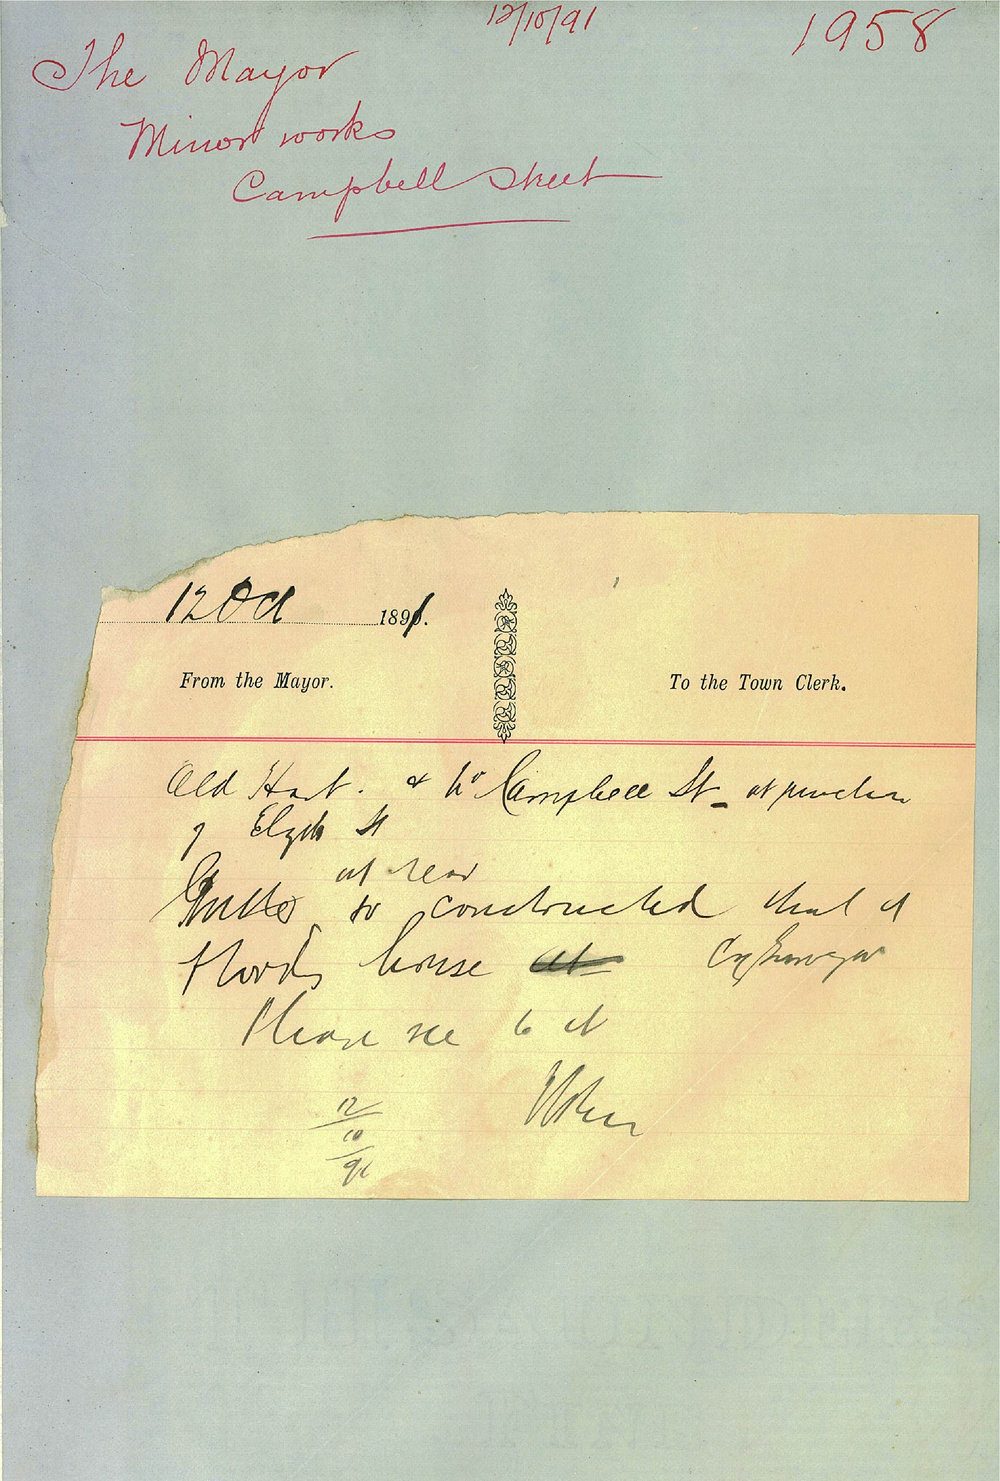 12/10/91
1958
The Mayor
Minor works
Campbell Street
12 Oct 1891.
From the Mayor.
To the Town Clerk.
Old Hart. & Campbell St at junction
of St
at rear
so constructed that it
floods house City Surveyor
Please see to it
12/10/91